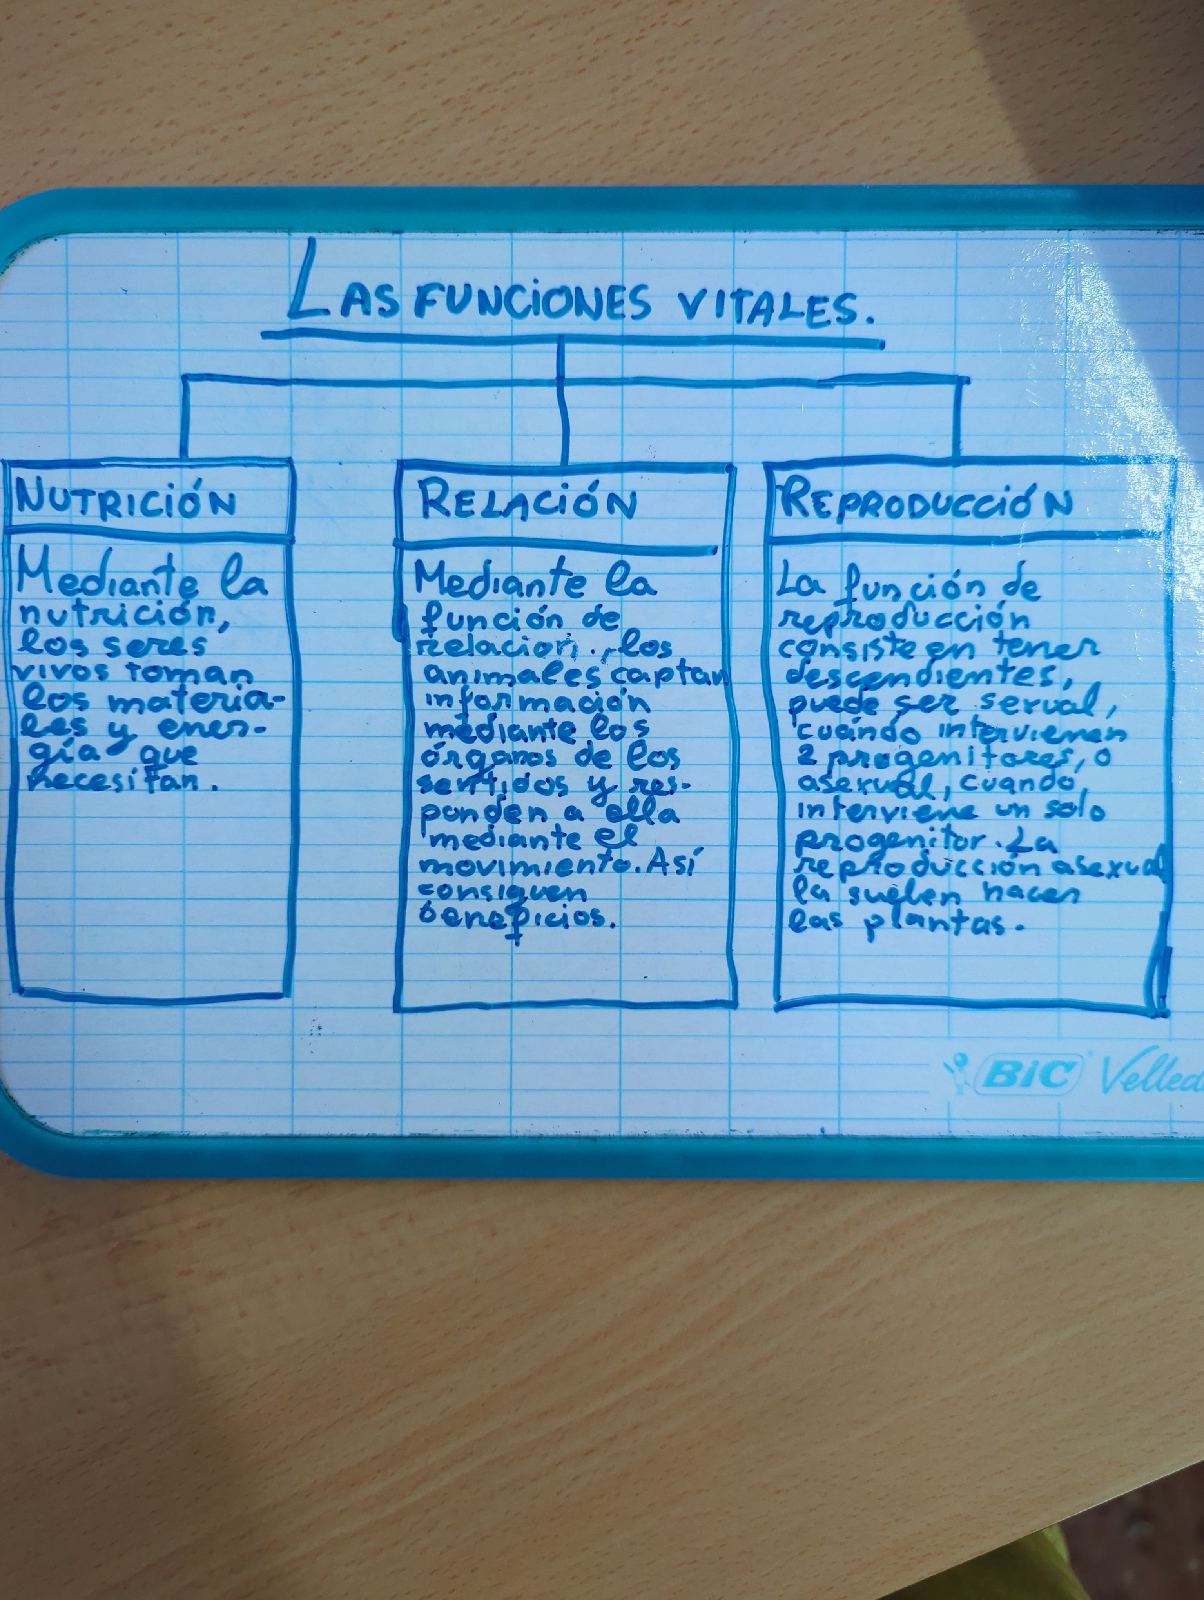 LAS FUNCIONES VITALES.
NUTRICIÓN
Mediante la
nutrición,
los seres
vivos toman
los materia-
les y ener-
gía que
necesitan.
RELACIÓN
Mediante la
función de
relación., los
animales captan
información
mediante los
órganos de los
sentidos y res-
ponden a ella
mediante el
movimiento. Así
consiguen
beneficios.
REPRODUCCIÓN
La función de
reproducción
consiste en tener
descendientes,
puede ser sexual,
cuándo intervienen
2 progenitores, o
asexual, cuando,
interviene un solo
progenitor. La
reproducción asexual
la suelen hacer
las plantas.
BIC Velleda